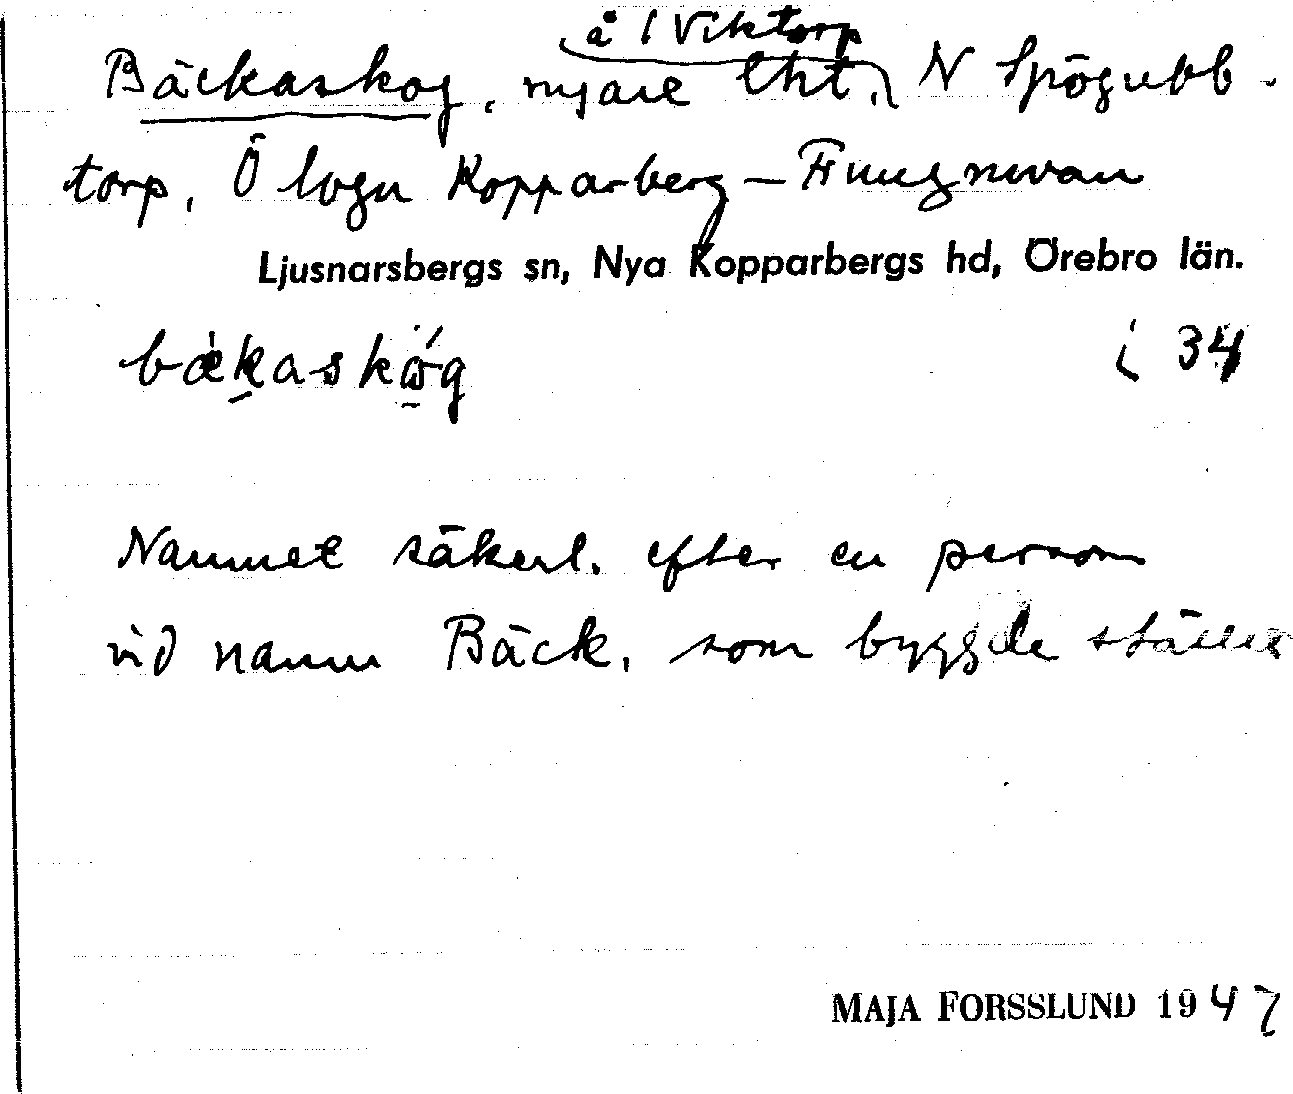 å 1 Viktorp
Bäckaskog, nyare lht, N Spögubb-
torp, Ö lvgn Kopparberg – Finngruvan
Ljusnarsbergs sn, Nya Kopparbergs hd, Örebro län.
i 34
Namnet säkerl. efter en person
vid namn Bäck, som byggde stället
MAJA FORSSLUND 1947